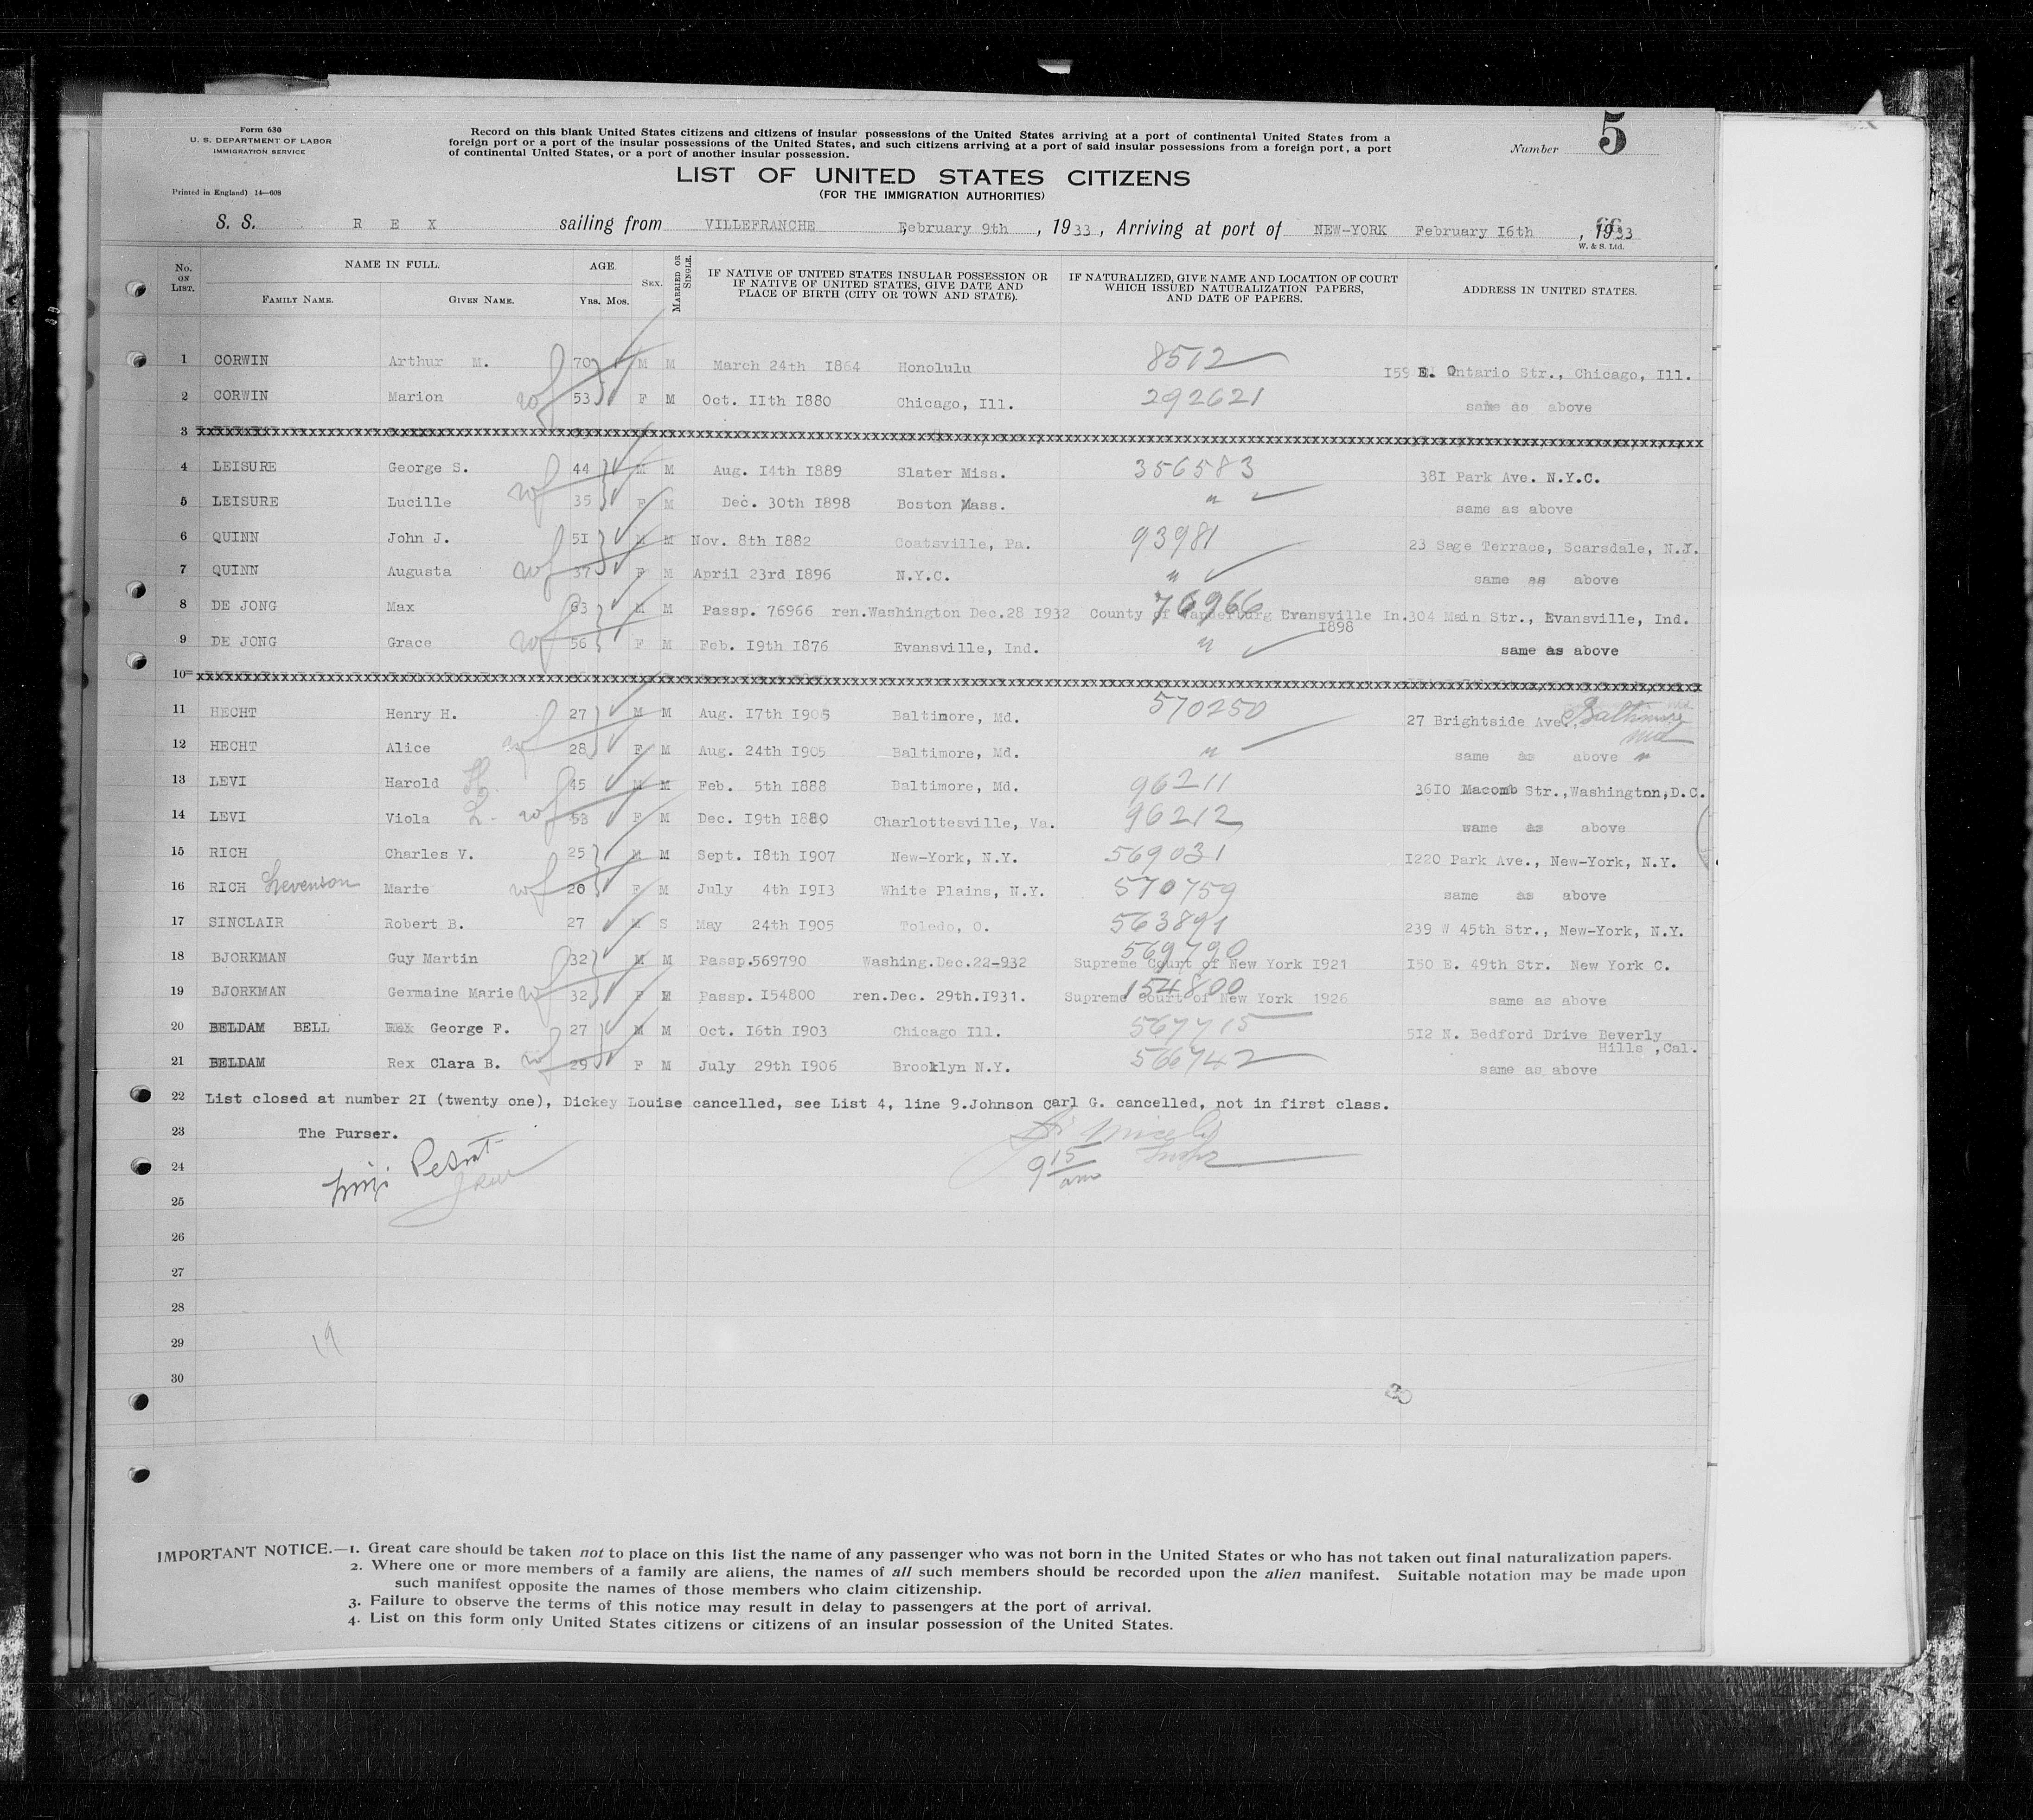 Form 630
U. S. DEPARTMENT OF LABOR
IMMIGRATION SERVICE
Printed in England) 14—608
Record on this blank United States citizens and citizens of insular possessions of the United States arriving at a port of continental United States from a
foreign port or a port of the insular possessions of the United States, and such citizens arriving at a port of said insular possessions from a foreign port, a port
of continental United States, or a port of another insular possession.
Number 5
LIST OF UNITED STATES CITIZENS
(FOR THE IMMIGRATION AUTHORITIES)
S. S. R E X sailing from VILLEFRANCHE, February 9th, 1933, Arriving at port of NEW-YORK February I6th, 1933
W. & S. Ltd.
No. ON LIST. NAME IN FULL. FAMILY NAME. GIVEN NAME. AGE Yrs. Mos. SEX. MARRIED OR SINGLE. IF NATIVE OF UNITED STATES INSULAR POSSESSION OR IF NATIVE OF UNITED STATES, GIVE DATE AND PLACE OF BIRTH (CITY OR TOWN AND STATE). IF NATURALIZED, GIVE NAME AND LOCATION OF COURT WHICH ISSUED NATURALIZATION PAPERS, AND DATE OF PAPERS. ADDRESS IN UNITED STATES.
1 CORWIN Arthur M. 70 M M March 24th I864 Honolulu 8512 I59 E. Ontario Str., Chicago, Ill.
2 CORWIN Marion wf 53 F M Oct. IIth I880 Chicago, Ill. 292621 same as above
3
4 LEISURE George S. 44 M M Aug. I4th I889 Slater Miss. 356583 38I Park Ave. N.Y.C.
5 LEISURE Lucille wf 35 F M Dec. 30th I898 Boston Mass. " same as above
6 QUINN John J. 5I M M Nov. 8th I882 Coatsville, Pa. 93981 23 Sage Terrace, Scarsdale, N.Y.
7 QUINN Augusta wf 37 F M April 23rd I896 N.Y.C. " same as above
8 DE JONG Max 63 M M Passp. 76966 ren.Washington Dec.28 I932 County of Vanderburg Evansville In. I898 76966 304 Main Str., Evansville, Ind.
9 DE JONG Grace wf 56 F M Feb. I9th I876 Evansville, Ind. " same as above
10
11 HECHT Henry H. 27 M M Aug. I7th I905 Baltimore, Md. 570250 27 Brightside Ave., Baltimore Md
12 HECHT Alice wf 28 F M Aug. 24th I905 Baltimore, Md. " same as above "
13 LEVI Harold 45 M M Feb. 5th I888 Baltimore, Md. 96211 36I0 Macomb Str.,Washington,D.C.
14 LEVI Viola wf 53 F M Dec. I9th I880 Charlottesville, Va. 96212 same as above
15 RICH Charles V. 25 M M Sept. I8th I907 New-York, N.Y. 569031 I220 Park Ave., New-York, N.Y.
16 RICH Levenson Marie wf 20 F M July 4th I9I3 White Plains, N.Y. 570759 same as above
17 SINCLAIR Robert B. 27 M S May 24th I905 Toledo, O. 563891 239 W 45th Str., New-York, N.Y.
18 BJORKMAN Guy Martin 32 M M Passp.569790 Washing.Dec.22-932 Supreme Court of New York I921 569790 I50 E. 49th Str. New York C.
19 BJORKMAN Germaine Marie wf 32 F M Passp. I54800 ren.Dec. 29th.I931. Supreme Court of New York I926 154800 same as above
20 BELDAM BELL Rex George F. 27 M M Oct. I6th I903 Chicago Ill. 567715 5I2 N. Bedford Drive Beverly Hills ,Cal.
21 BELDAM Rex Clara B. wf 29 F M July 29th I906 Brooklyn N.Y. 566742 same as above
22 List closed at number 2I (twenty one), Dickey Louise cancelled, see List 4, line 9.Johnson Carl G. cancelled, not in first class.
23 The Purser.
24 9 15 am
25
26
27
28
29 19
30
IMPORTANT NOTICE.—1. Great care should be taken not to place on this list the name of any passenger who was not born in the United States or who has not taken out final naturalization papers.
2. Where one or more members of a family are aliens, the names of all such members should be recorded upon the alien manifest. Suitable notation may be made upon
such manifest opposite the names of those members who claim citizenship.
3. Failure to observe the terms of this notice may result in delay to passengers at the port of arrival.
4. List on this form only United States citizens or citizens of an insular possession of the United States.